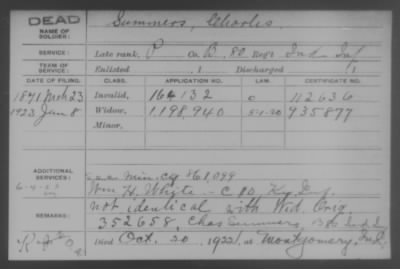 DEAD
NAME OF SOLDIER: Summers, Charles
SERVICE: Late rank, P Co. B, 80 Reg't Ind Inf
TERM OF SERVICE: Enlisted , 1 Discharged , 1
DATE OF FILING. CLASS. APPLICATION NO. LAW. CERTIFICATE NO.
1871 Mch 23 Invalid, 164132 112636
1923 Jan 8 Widow, 1,198,940 5-1-20 935877
Minor,
ADDITIONAL SERVICES:
Wm H. Whyte - C 10, Ky Inf
REMARKS: not identical with Wid. Orig
352658, Chas Summers, Ind
Died Oct. 20, 1922, at Montgomery, Ind.